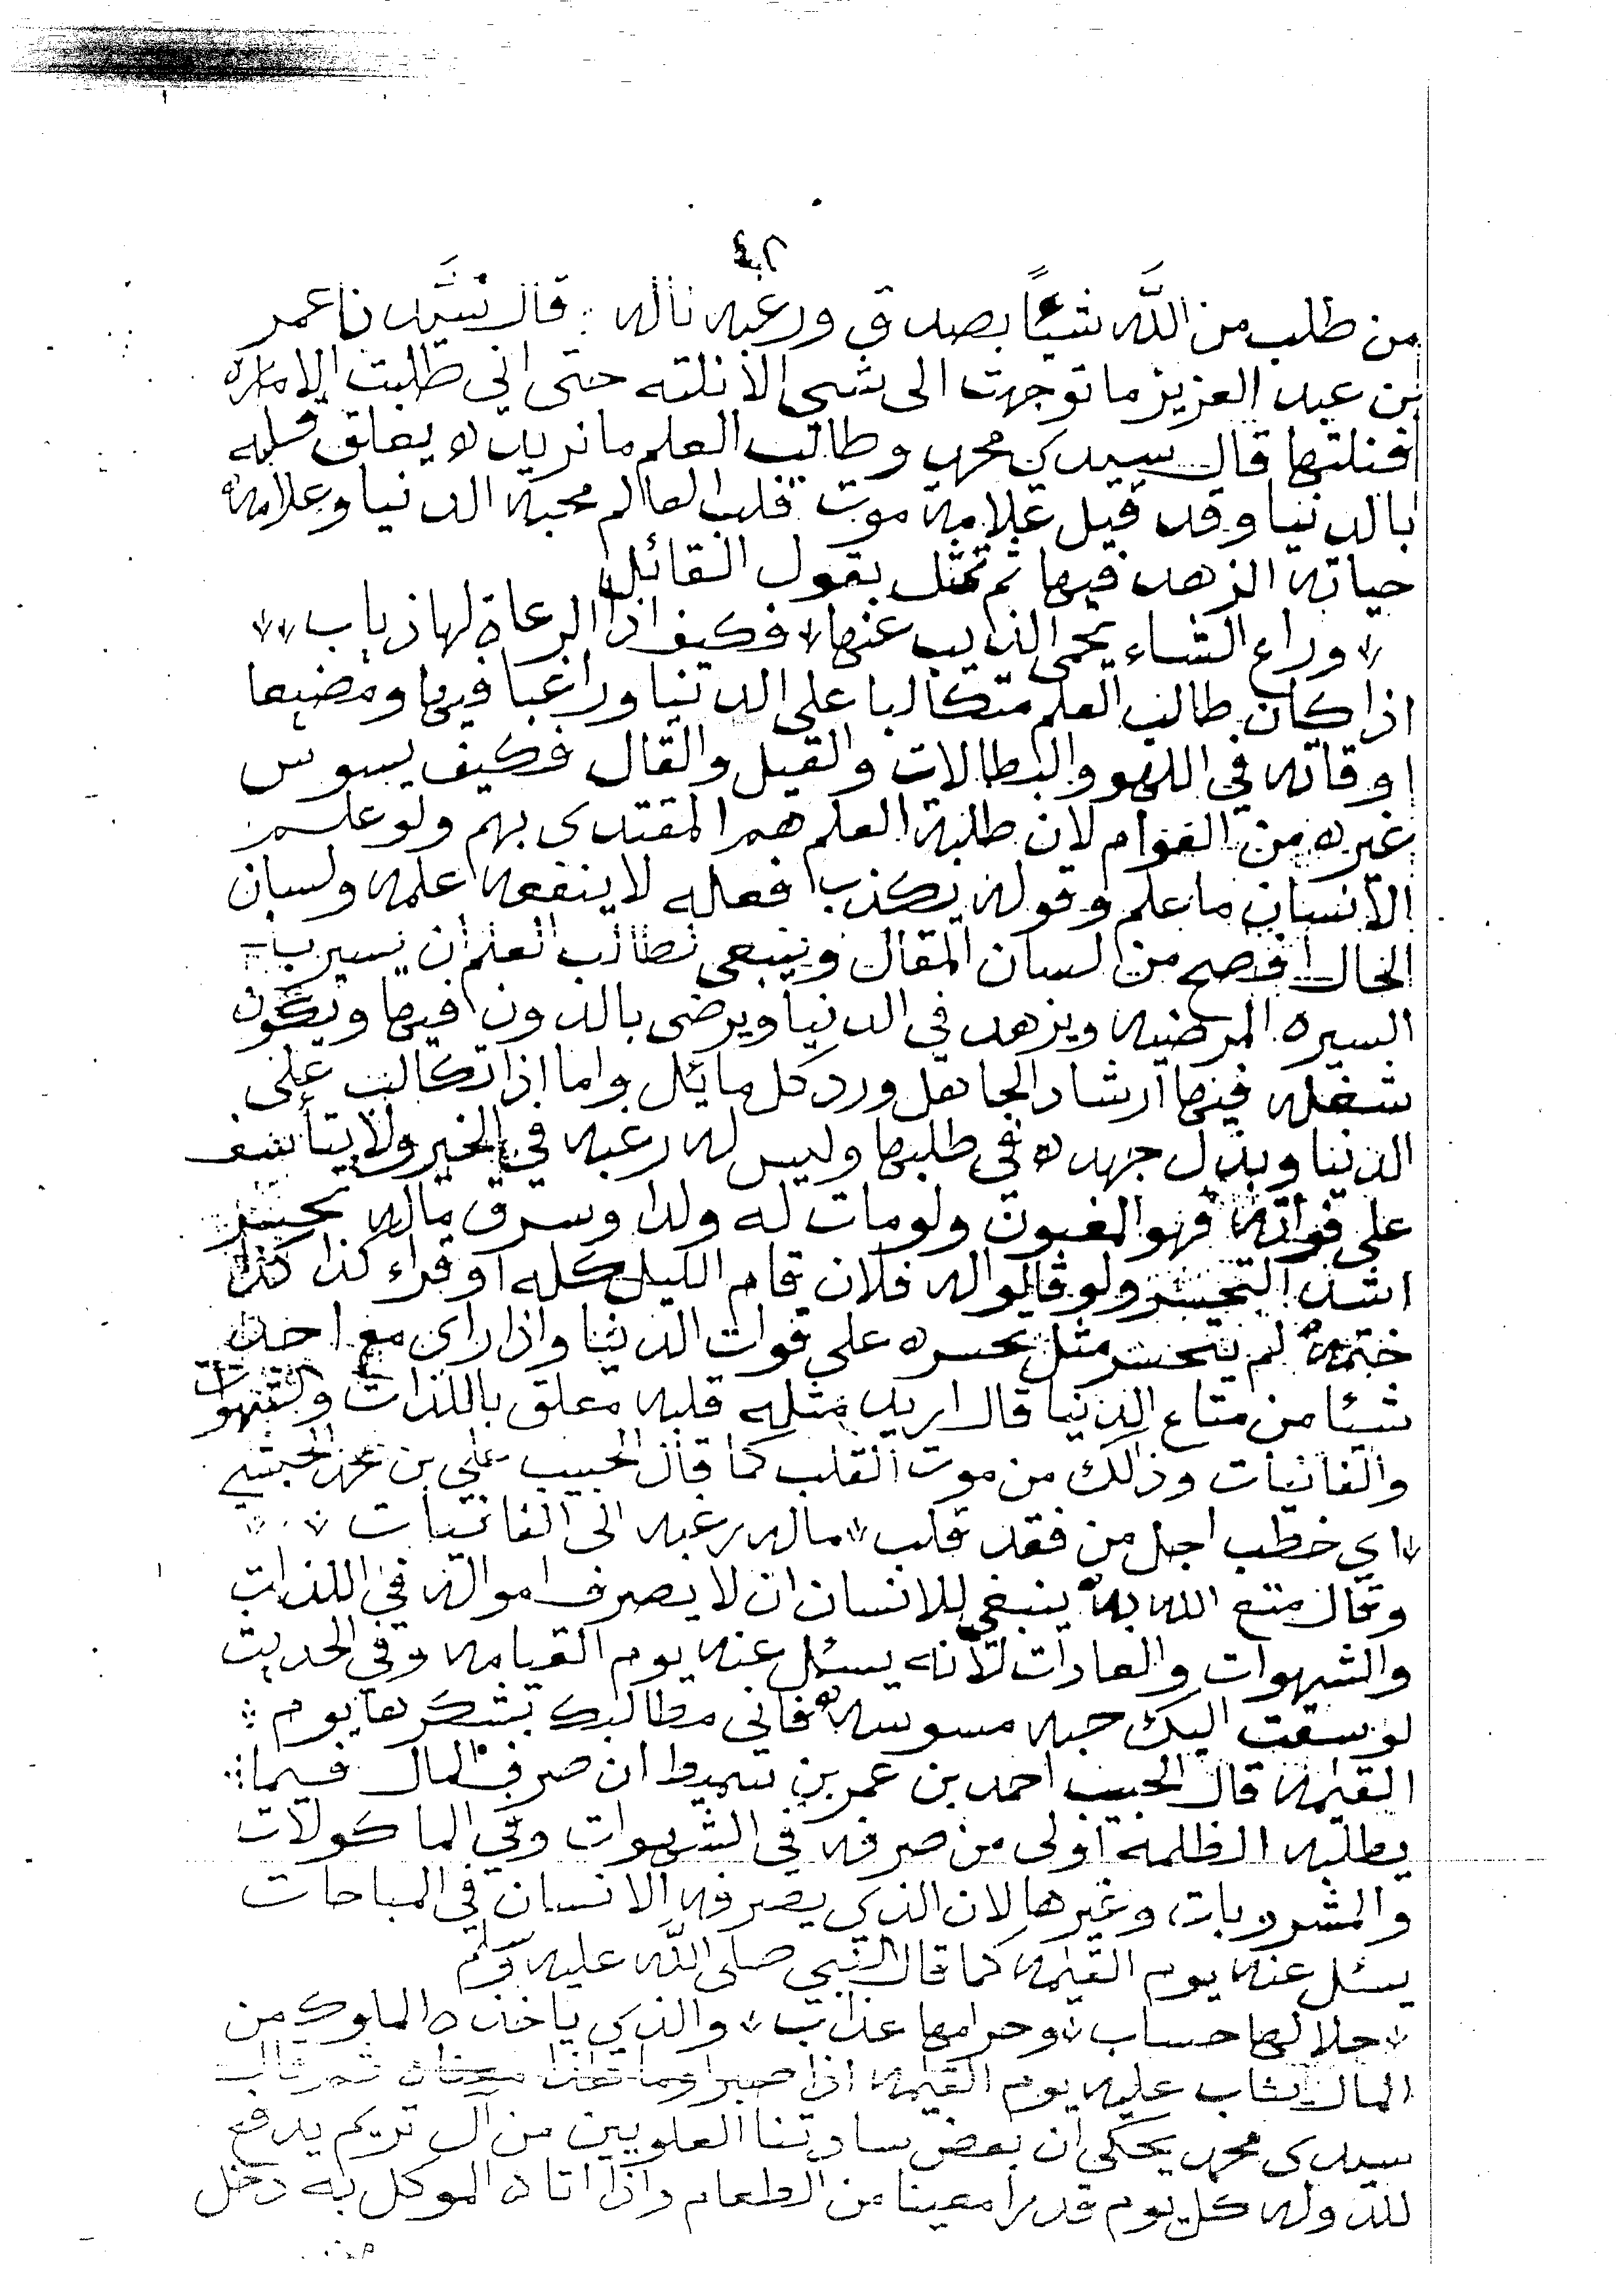 ٤٠٢
من طلب من اللَّه شيئًا بصدق ورغبه ناله : قال سيدنا عمر
بن عبد العزيز ما توجهت الى شي الا نلته حتى اني طلبت الاماره
فنلتها قال سيدي محمد وطالب العلم ما نريده يعلق قلبه
بالدنيا وقد قيل علامة موت قلب العالم محبة الدنيا وعلامة
حياته الزهد فيها ثم تمثل بقول القائل
وراع الشاء يحمى الذيب عنها فكيف اذا الرعاة لها ذياب
اذا كان طالب العلم متكالبا على الدنيا وراغبا فيها ومضيعا
اوقاته في اللهو والبطالات والقيل والقال فكيف يسوس
غيره من العوام لان طلبة العلم هم المقتدى بهم ولو علم
الانسان ما علم وقوله يكذب فعله لا ينفعه علمه ولسان
الحال افصح من لسان المقال وينبغي لطالب العلم ان يسير ب
السيره المرضيه ويزهد في الدنيا ويرضى بالدون فيها ويكون
شغله فيها ارشاد الجاهل ورد كل مائل واما اذا تكالب على
الدنيا وبذل جهده في طلبها وليس له رغبه في الخير ولا يتأسف
على فواته فهو المغبون ولو مات له ولد او سرق ماله تحسر
اشد التحسر ولو قالوا له فلان قام الليل كله او قراء كذا كذا
ختمة لم يتحسر مثل تحسره على فوات الدنيا واذا راى مع احد
شيئا من متاع الدنيا قال اريد مثله قلبه معلق باللذات والشهوات
والفانيات وذلك من موت القلب كما قال الحبيب علي بن محمد الحبشي
اي خطب اجل من فقد قلب ماله رغبه الى الفانيات
وقال متع الله به ينبغي للانسان ان لا يصرف امواله في اللذات
والشهوات والعادات لأنه يسئل عنه يوم القيامه وفي الحديث
لو سقت اليك حبه مسوسة فاني مطالبك بشكرها يوم :
القيمه قال الحبيب احمد بن عمر بن سميط ان صرف المال فيما :
يطلبه الظلمة اولى من صرفه في الشهوات وفي الماكولات
والمشروبات وغيرها لان الذي يصرفه الانسان في المباحات
يسئل عنه يوم القيمه كما قال النبي صلى اللَّه عليه وسلم
حلالها حساب وحرامها عذاب والذي ياخذه الملوك من
المال يثاب عليه يوم القيمه اذا صبر
سيدى محمد يحكى ان بعض سادتنا العلويين من آل تريم يدفع
للدوله كل يوم قدرا معينا من الطعام واذا اتاه الموكل به دخل